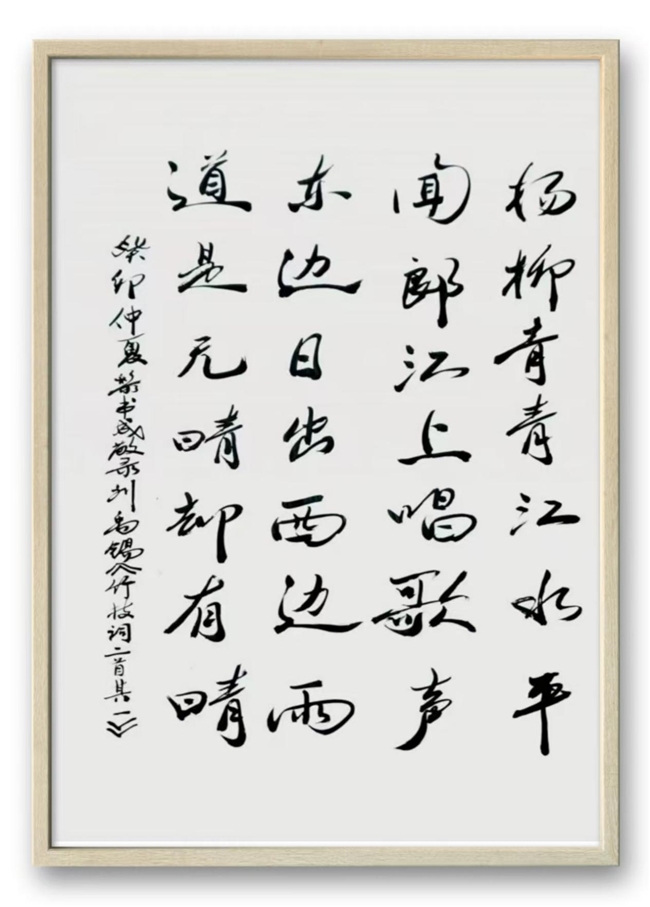 杨柳青青江水平
闻郎江上唱歌声
东边日出西边雨
道是无晴却有晴
癸卯仲夏 书 敬录刘禹锡《竹枝词二首其一》